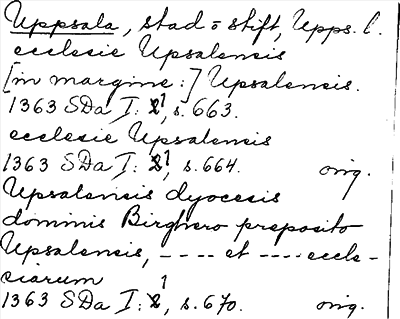 Uppsala, stad o stift, Upps. l.
ecclesie Upsalensis
[in margine:] Upsalensis.
1363 SDa I: 1, s. 663.
ecclesie Upsalensis
1363 SDa I: 1, s. 664. orig.
Upsalensis dyocesis
dominis Birghero preposito
Upsalensis, ---- et ---- eccle-
siarum
1363 SDa I: 1, s. 670. orig.